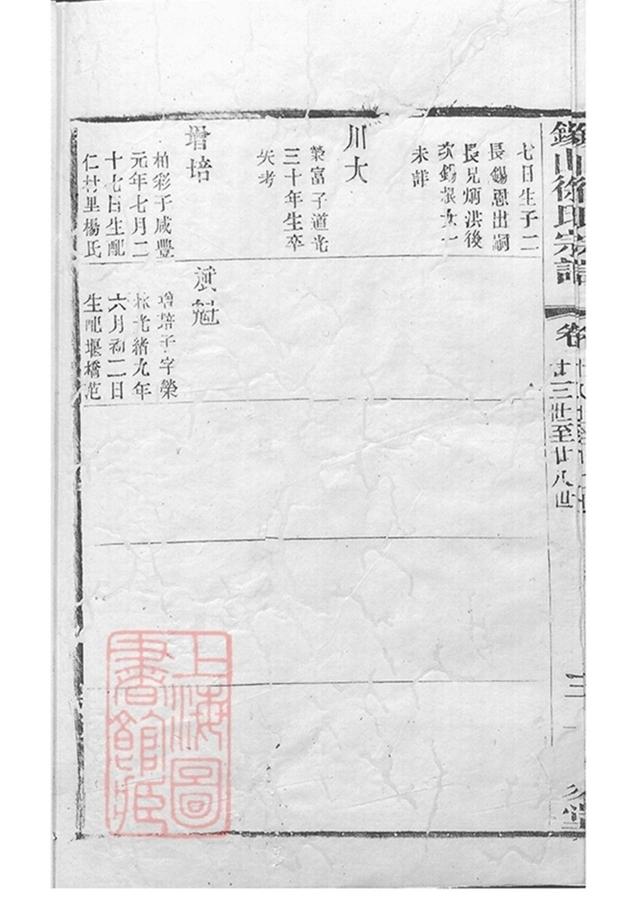 山徐氏宗譜
卷
廿三世至廿八世
三
七日生子二
長錫恩出嗣
長兄炳洪後
次錫根女一
未詳
川大
榮富子道光
三十年生卒
失考
增培
柏彩子咸豐
元年七月二
十七日生配
仁村里楊氏
斌魁
增培子字榮
林光緒九年
六月初二日
生配堰橋范
上海圖
書館藏